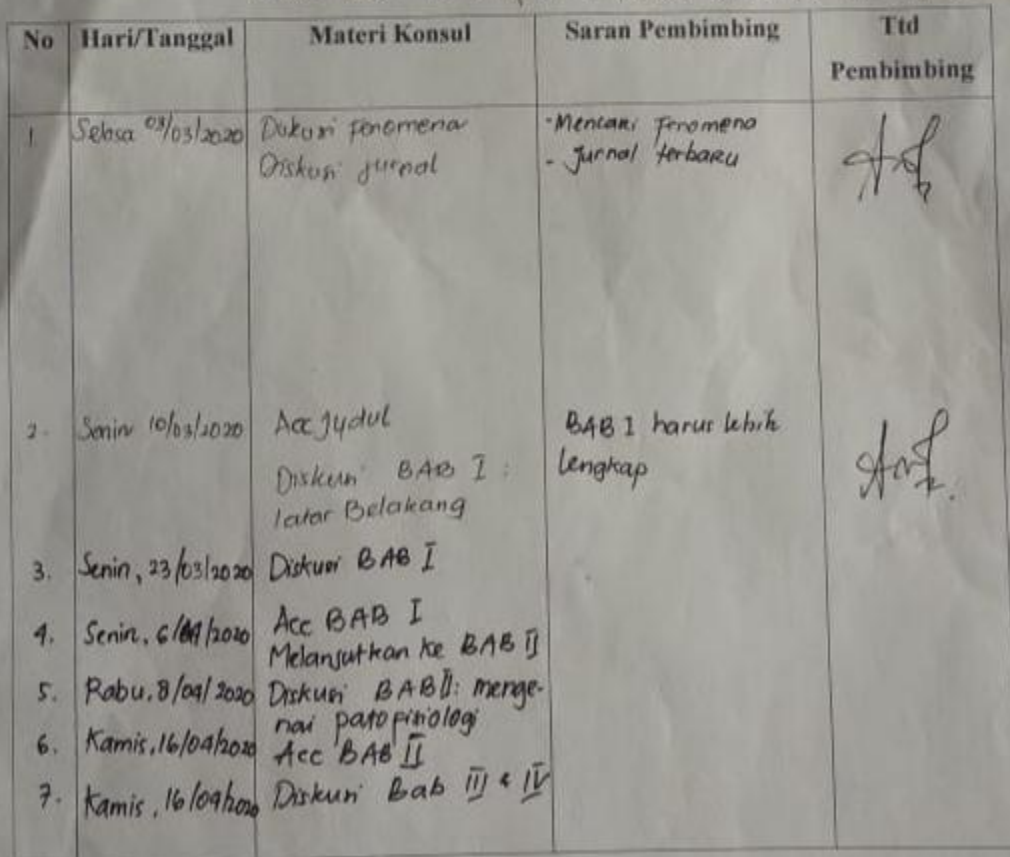 No Hari/Tanggal Materi Konsul Saran Pembimbing Ttd
Pembimbing
1. Selasa 03/03/2020 Diskusi fenomena - Mencari fenomena
Diskusi jurnal - Jurnal terbaru
2. Senin 10/03/2020 Acc Judul BAB I harus lebih
Diskusi BAB I : lengkap
latar Belakang
3. Senin, 23/03/2020 Diskusi BAB I
4. Senin, 6/04/2020 Acc BAB I
Melanjutkan ke BAB II
5. Rabu, 8/04/2020 Diskusi BAB II: menge-
nai patofisiologi
6. Kamis, 16/04/2020 Acc BAB II
7. Kamis, 16/04/2020 Diskusi Bab III & IV